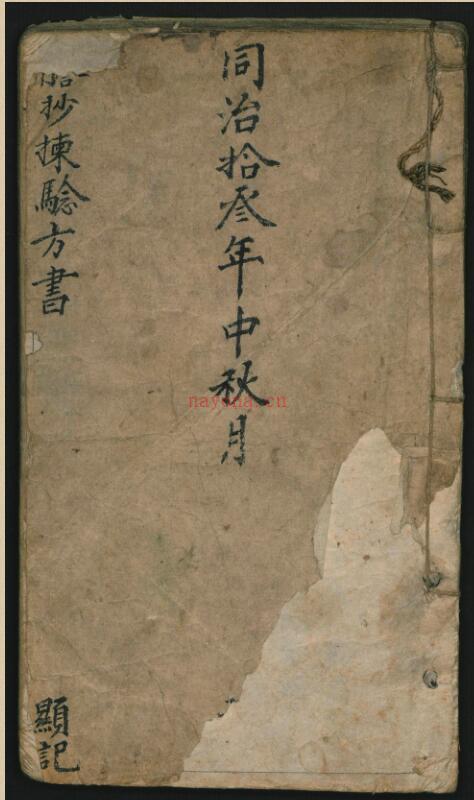 同治拾叁年中秋月
抄揀騐方書
顯記
nayona.cn